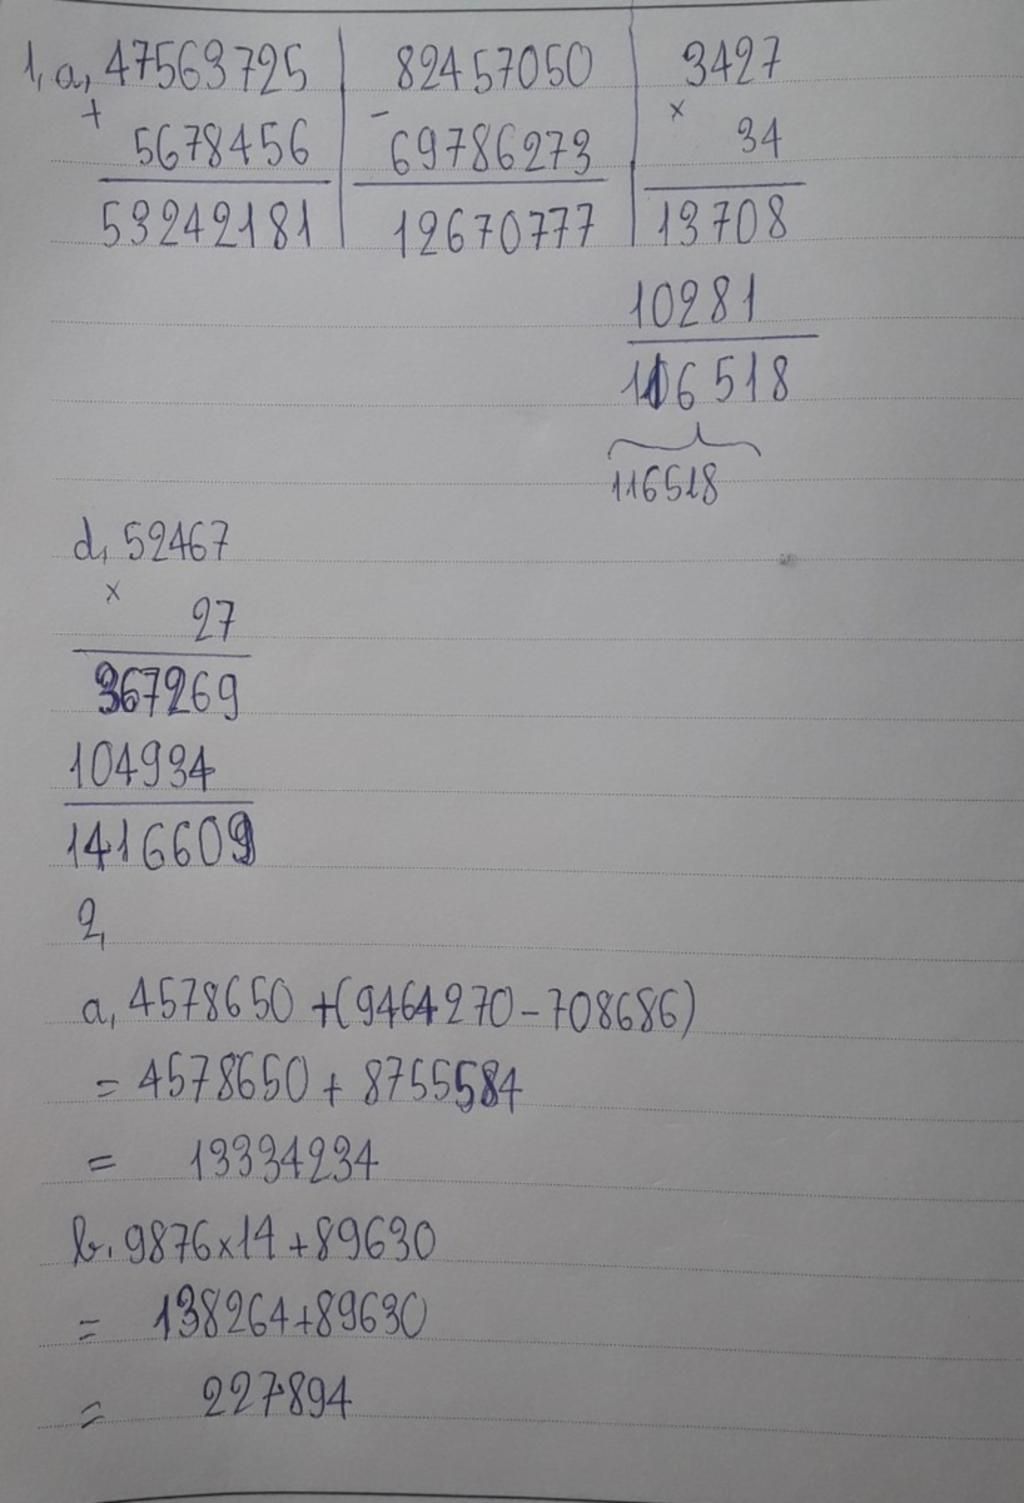 1, a, 47563725 | 82457050 | 3427
+ - ×
5678456 | 69786273 | 34
53242181 | 12670777 | 13708
10281
116518
116518
d, 52467
×
27
367269
104934
1416609
2,
a, 4578650 + (9464270 - 708686)
= 4578650 + 8755584
= 13334234
b. 9876 × 14 + 89630
= 138264 + 89630
= 227894